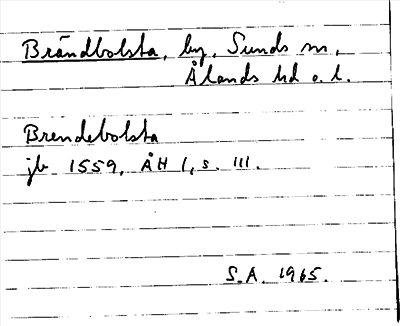 Brändbolsta, by, Sunds sn,
Ålands hd o. l.
Brendebolsta
jb 1559, ÅH 1, s. 111.
S.A. 1965.